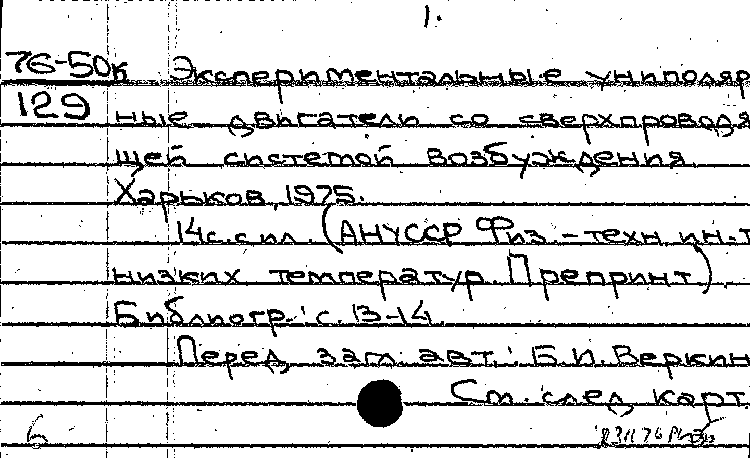 1.
76-50к Экспериментальные униполяр
129 ные двигатели со сверхпроводя
щей системой возбуждения
Харьков, 1975.
14с. с ил. (АНУССР Физ.-техн. ин-т
низких температур. Препринт)
Библиогр.: с. 13-14.
Перед заг. авт.: Б.И. Веркин
См. след. карт.
6